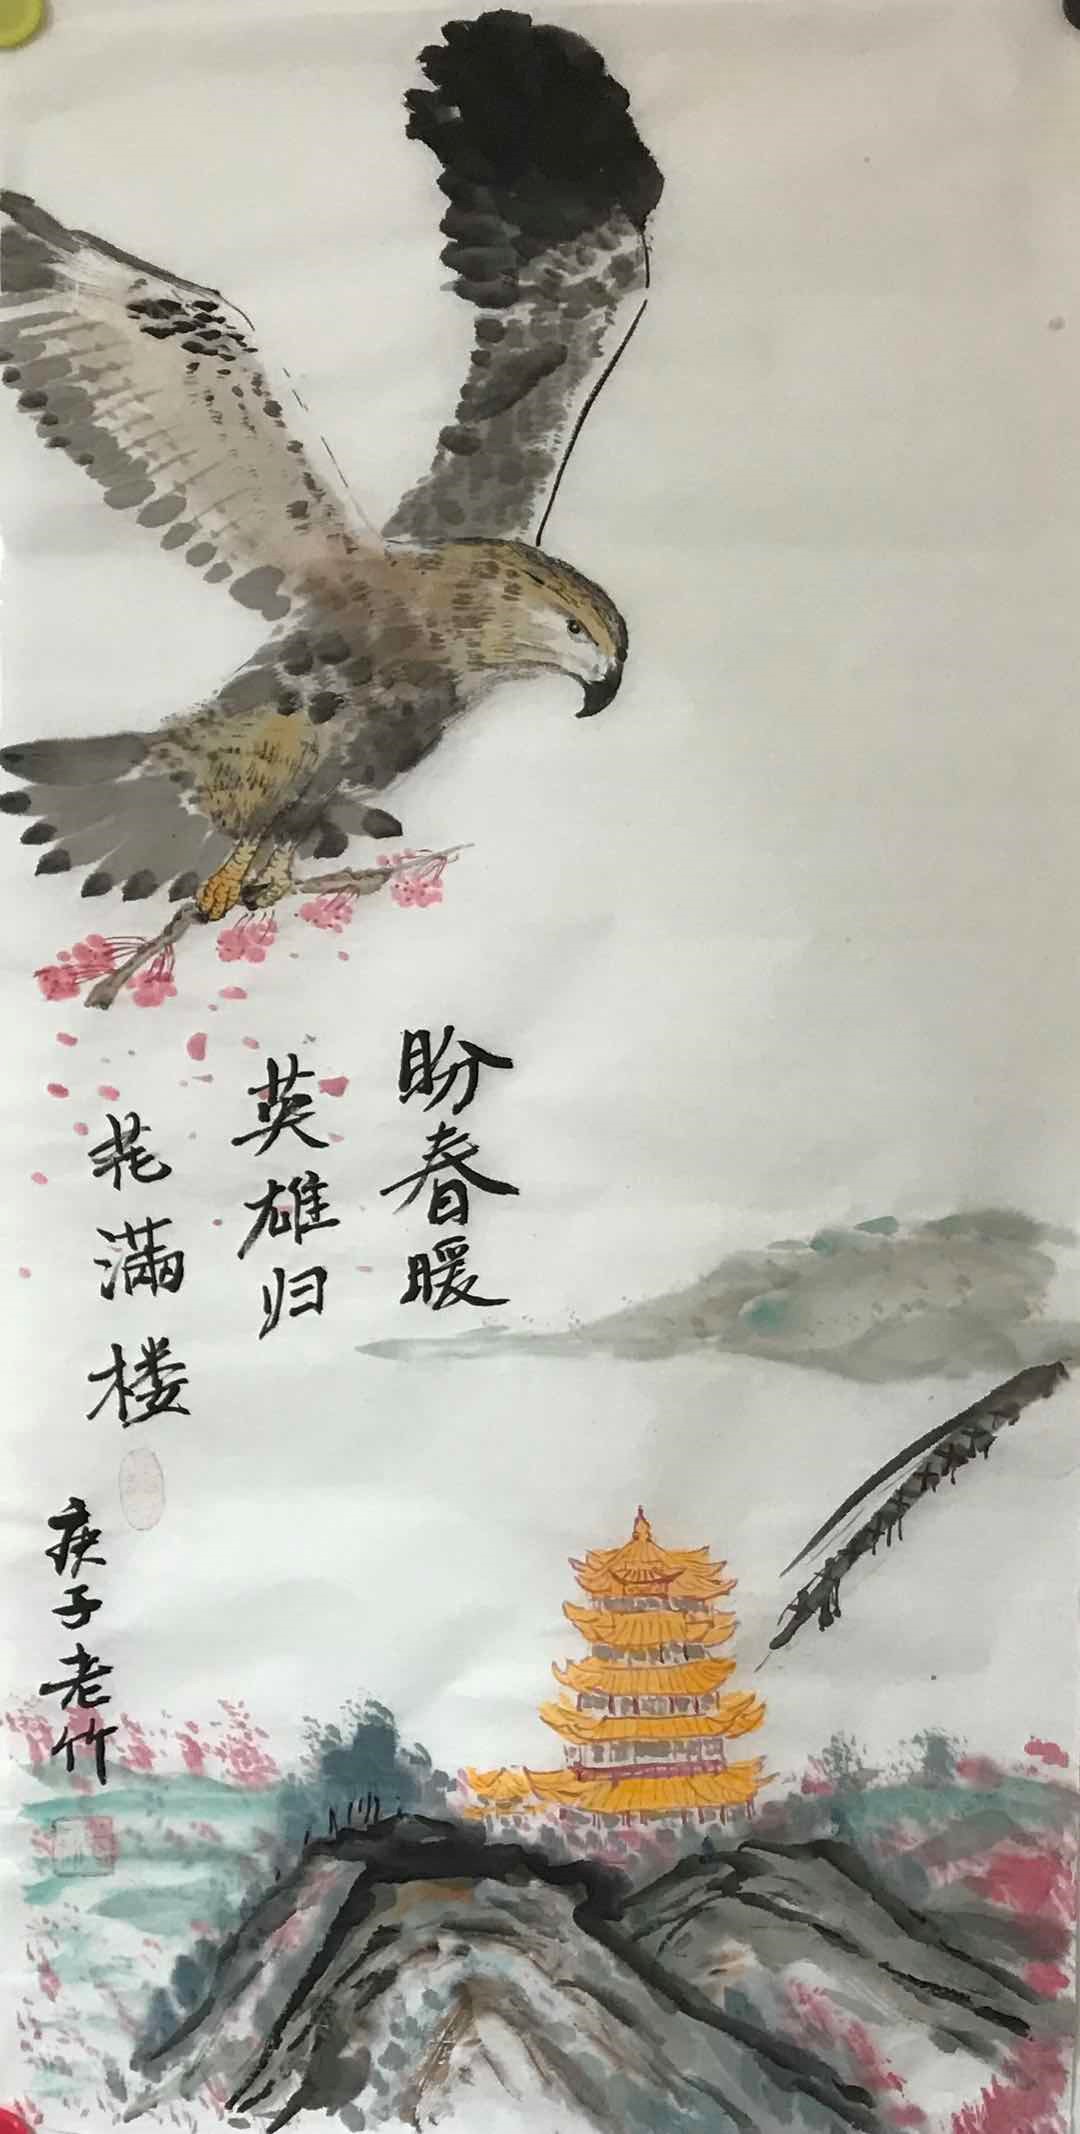 盼春暖
英雄归
花满楼
庚子老竹